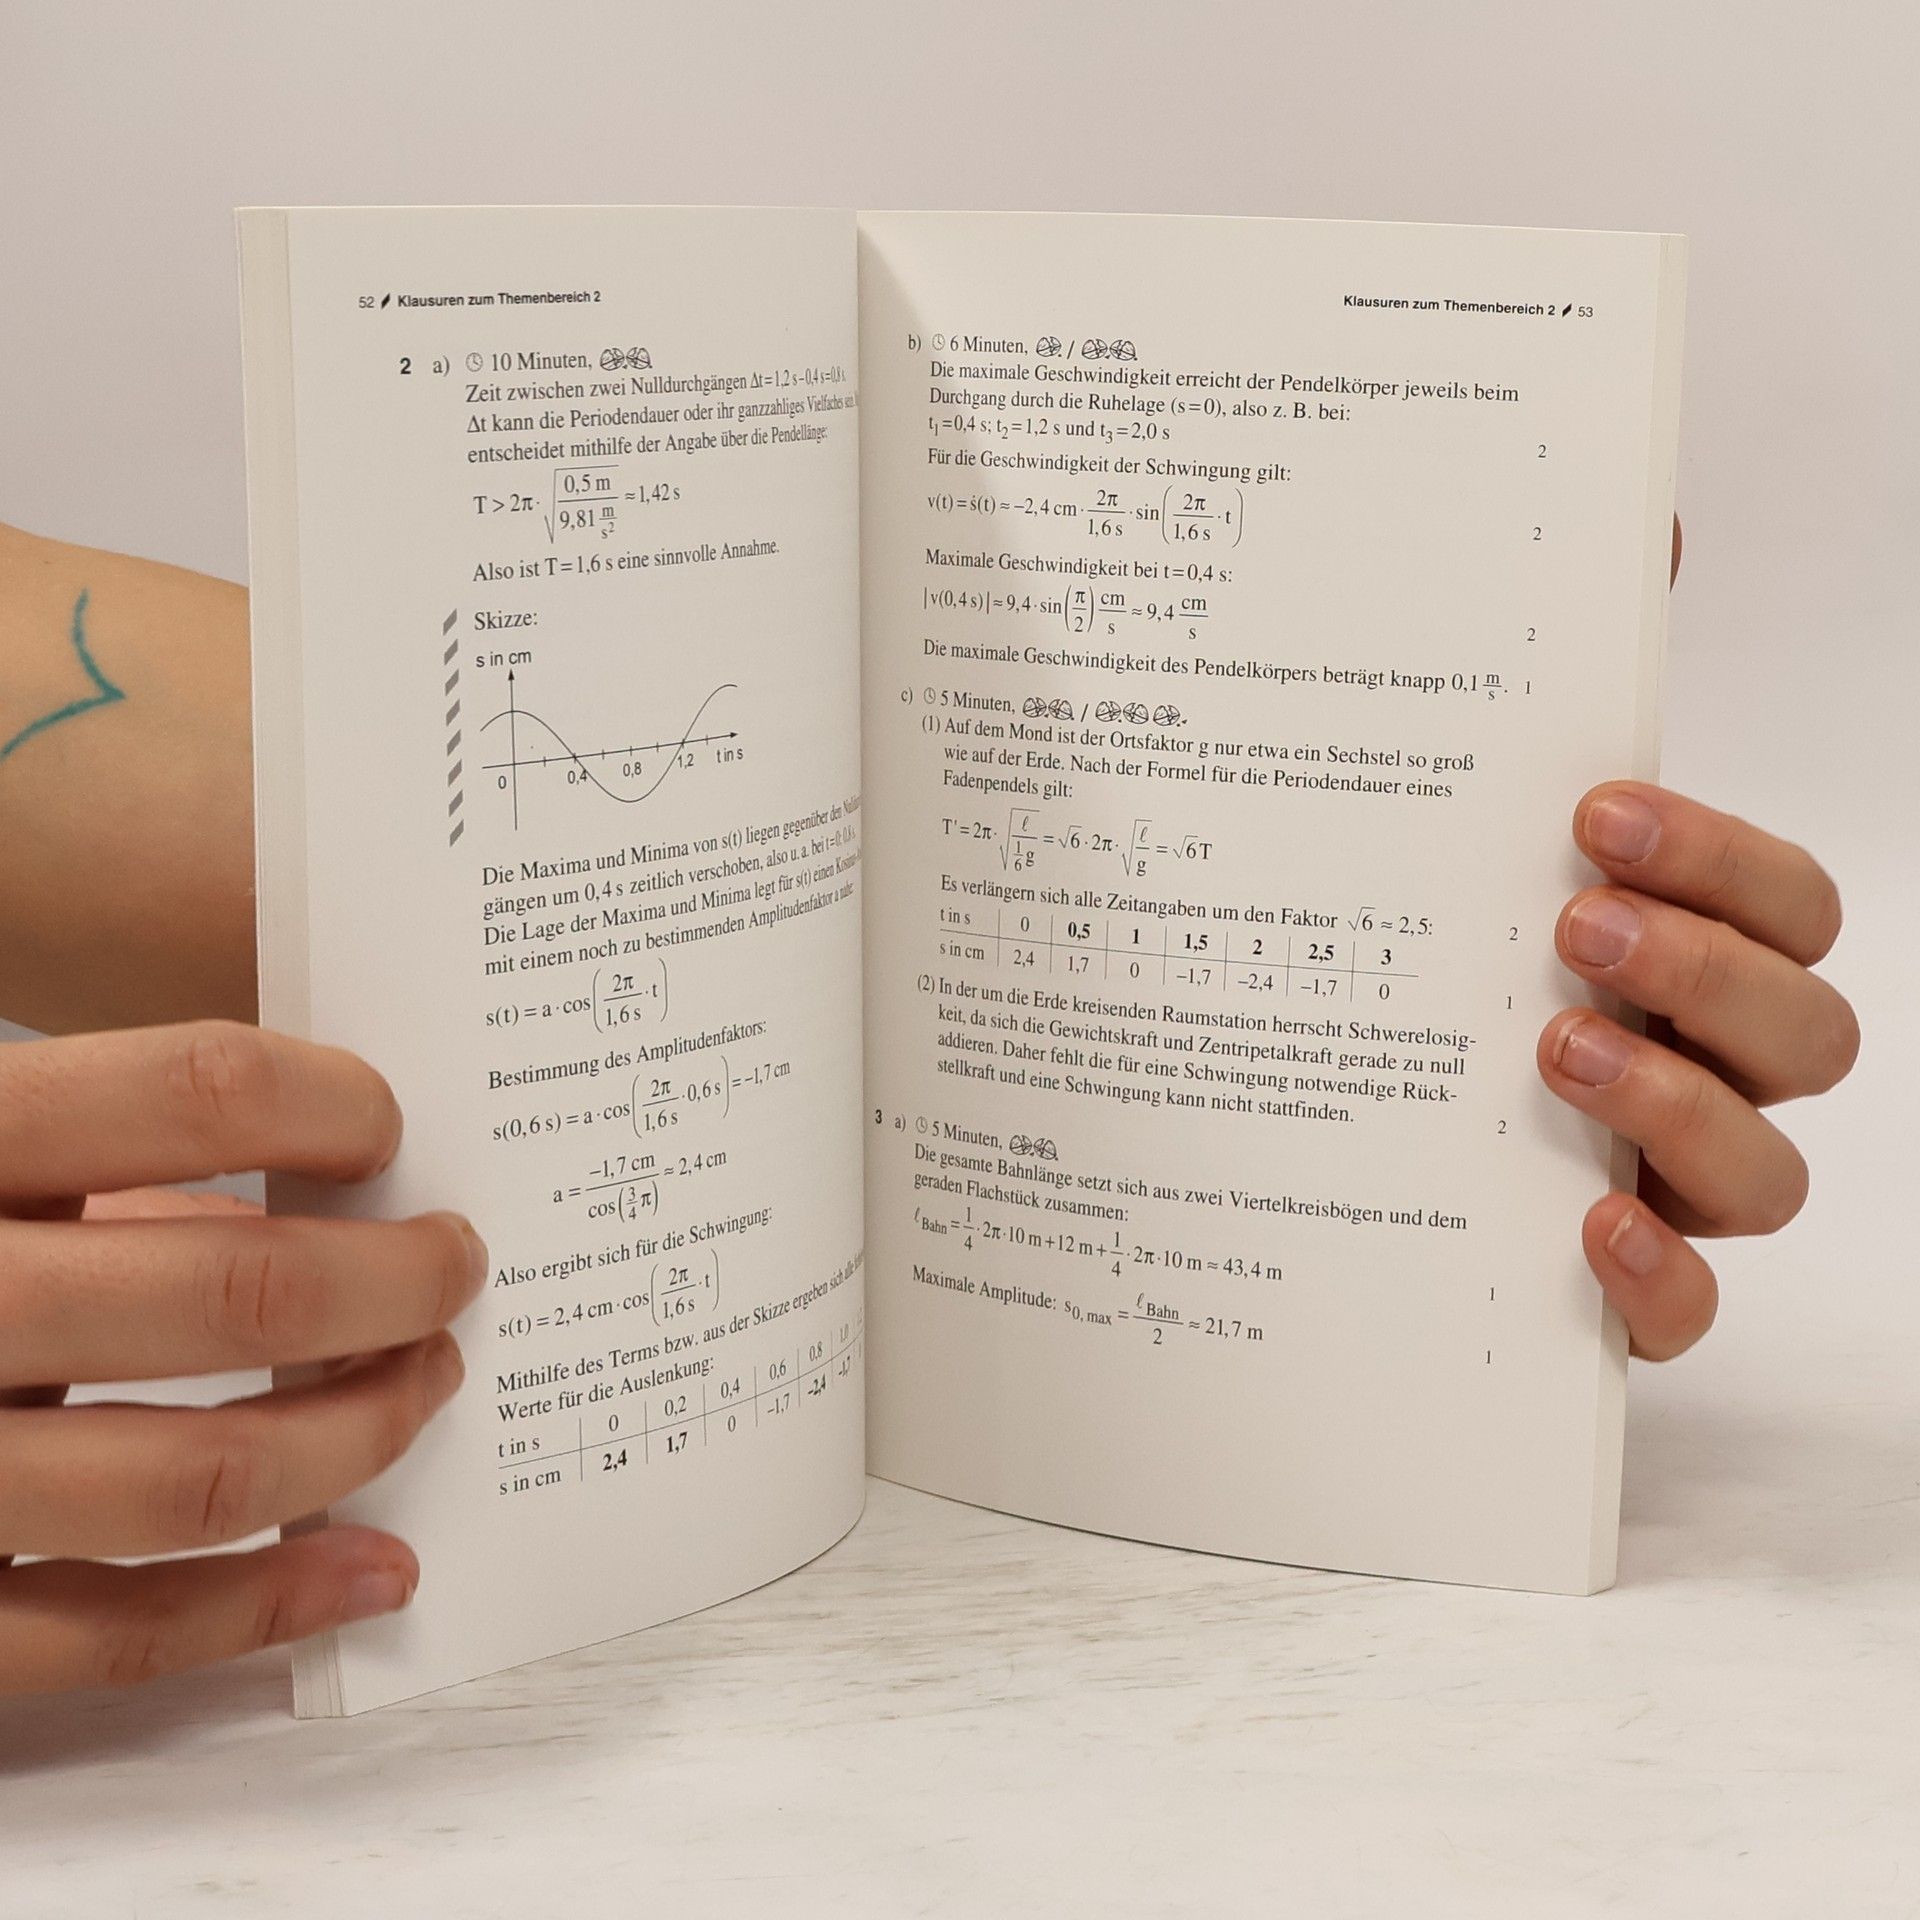 52 Klausuren zum Themenbereich 2
2 a) 10 Minuten,
Zeit zwischen zwei Nulldurchgängen Δt=1,2 s–0,4 s=0,8 s.
Δt kann die Periodendauer oder ihr ganzzahliges Vielfaches
entscheidet mithilfe der Angabe über die Pendellänge:
T > 2π · √(0,5 m / 9,81 m/s²) ≈ 1,42 s
Also ist T = 1,6 s eine sinnvolle Annahme.
Skizze:
s in cm
0 0,4 0,8 1,2 t in s
Die Maxima und Minima von s(t) liegen gegenüber den
gängen um 0,4 s zeitlich verschoben, also u. a. bei t=0; 0,8 s.
Die Lage der Maxima und Minima legt für s(t) einen
mit einem noch zu bestimmenden Amplitudenfaktor a nahe:
s(t) = a · cos(2π/1,6 s · t)
Bestimmung des Amplitudenfaktors:
s(0,6 s) = a · cos(2π/1,6 s · 0,6 s) = –1,7 cm
a = –1,7 cm / cos(3/4 π) ≈ 2,4 cm
Also ergibt sich für die Schwingung:
s(t) = 2,4 cm · cos(2π/1,6 s · t)
Mithilfe des Terms bzw. aus der Skizze ergeben sich alle
Werte für die Auslenkung:
t in s 0 0,2 0,4 0,6 0,8 1,0
s in cm 2,4 1,7 0 –1,7 –2,4 –1,7
Klausuren zum Themenbereich 2 53
b) 6 Minuten, /
Die maximale Geschwindigkeit erreicht der Pendelkörper jeweils beim
Durchgang durch die Ruhelage (s=0), also z. B. bei:
t₁=0,4 s; t₂=1,2 s und t₃=2,0 s 2
Für die Geschwindigkeit der Schwingung gilt:
v(t) = ṡ(t) ≈ –2,4 cm · 2π/1,6 s · sin(2π/1,6 s · t) 2
Maximale Geschwindigkeit bei t=0,4 s:
|v(0,4 s)| ≈ 9,4 · sin(π/2) cm/s ≈ 9,4 cm/s 2
Die maximale Geschwindigkeit des Pendelkörpers beträgt knapp 0,1 m/s. 1
c) 5 Minuten, /
(1) Auf dem Mond ist der Ortsfaktor g nur etwa ein Sechstel so groß
wie auf der Erde. Nach der Formel für die Periodendauer eines
Fadenpendels gilt:
T' = 2π · √(ℓ / (1/6 g)) = √6 · 2π · √(ℓ/g) = √6 T
Es verlängern sich alle Zeitangaben um den Faktor √6 ≈ 2,5: 2
t in s 0 0,5 1 1,5 2 2,5 3
s in cm 2,4 1,7 0 –1,7 –2,4 –1,7 0 1
(2) In der um die Erde kreisenden Raumstation herrscht Schwerelosig-
keit, da sich die Gewichtskraft und Zentripetalkraft gerade zu null
addieren. Daher fehlt die für eine Schwingung notwendige Rück-
stellkraft und eine Schwingung kann nicht stattfinden. 2
3 a) 5 Minuten,
Die gesamte Bahnlänge setzt sich aus zwei Viertelkreisbögen und dem
geraden Flachstück zusammen:
ℓ Bahn = 1/4 · 2π · 10 m + 12 m + 1/4 · 2π · 10 m ≈ 43,4 m 1
Maximale Amplitude: s0, max = ℓ Bahn / 2 ≈ 21,7 m 1